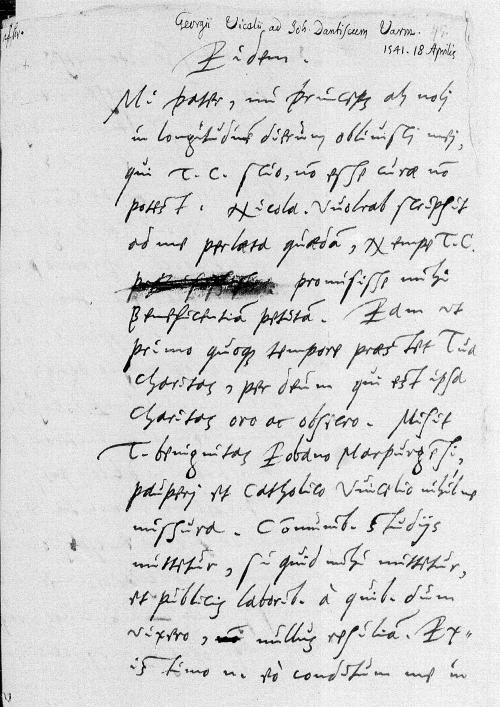 Georgii Vicelii ad Joh. Dantiscum Varm.
1541. 18 Aprilis
Eidem.
Mi pater, mi princeps ah noli
in longitudinē dierum oblivisci mei,
qui T. C. scio, nō esse curæ nō
potest. Nicola. Vuolrab scripsit
ad me perlata quædā, Nempe T. C.
promisisse mihi
beneficentiā petitā. Eam ut
primo quoq; tempore præstet Tua
charitas, per deum qui est ipsa
charitas oro ac obsecro. Misit
T. benignitas Eobano Marpurgēsi,
pauperi et catholico Vuicelio nihil ne
missura. Cōmunib. studijs
mittetur, si quid mihi mittetur,
et publicis laborib. à quib. dum
vixero, nullus resiliā. Ex-
istimo n. eò conditum me in